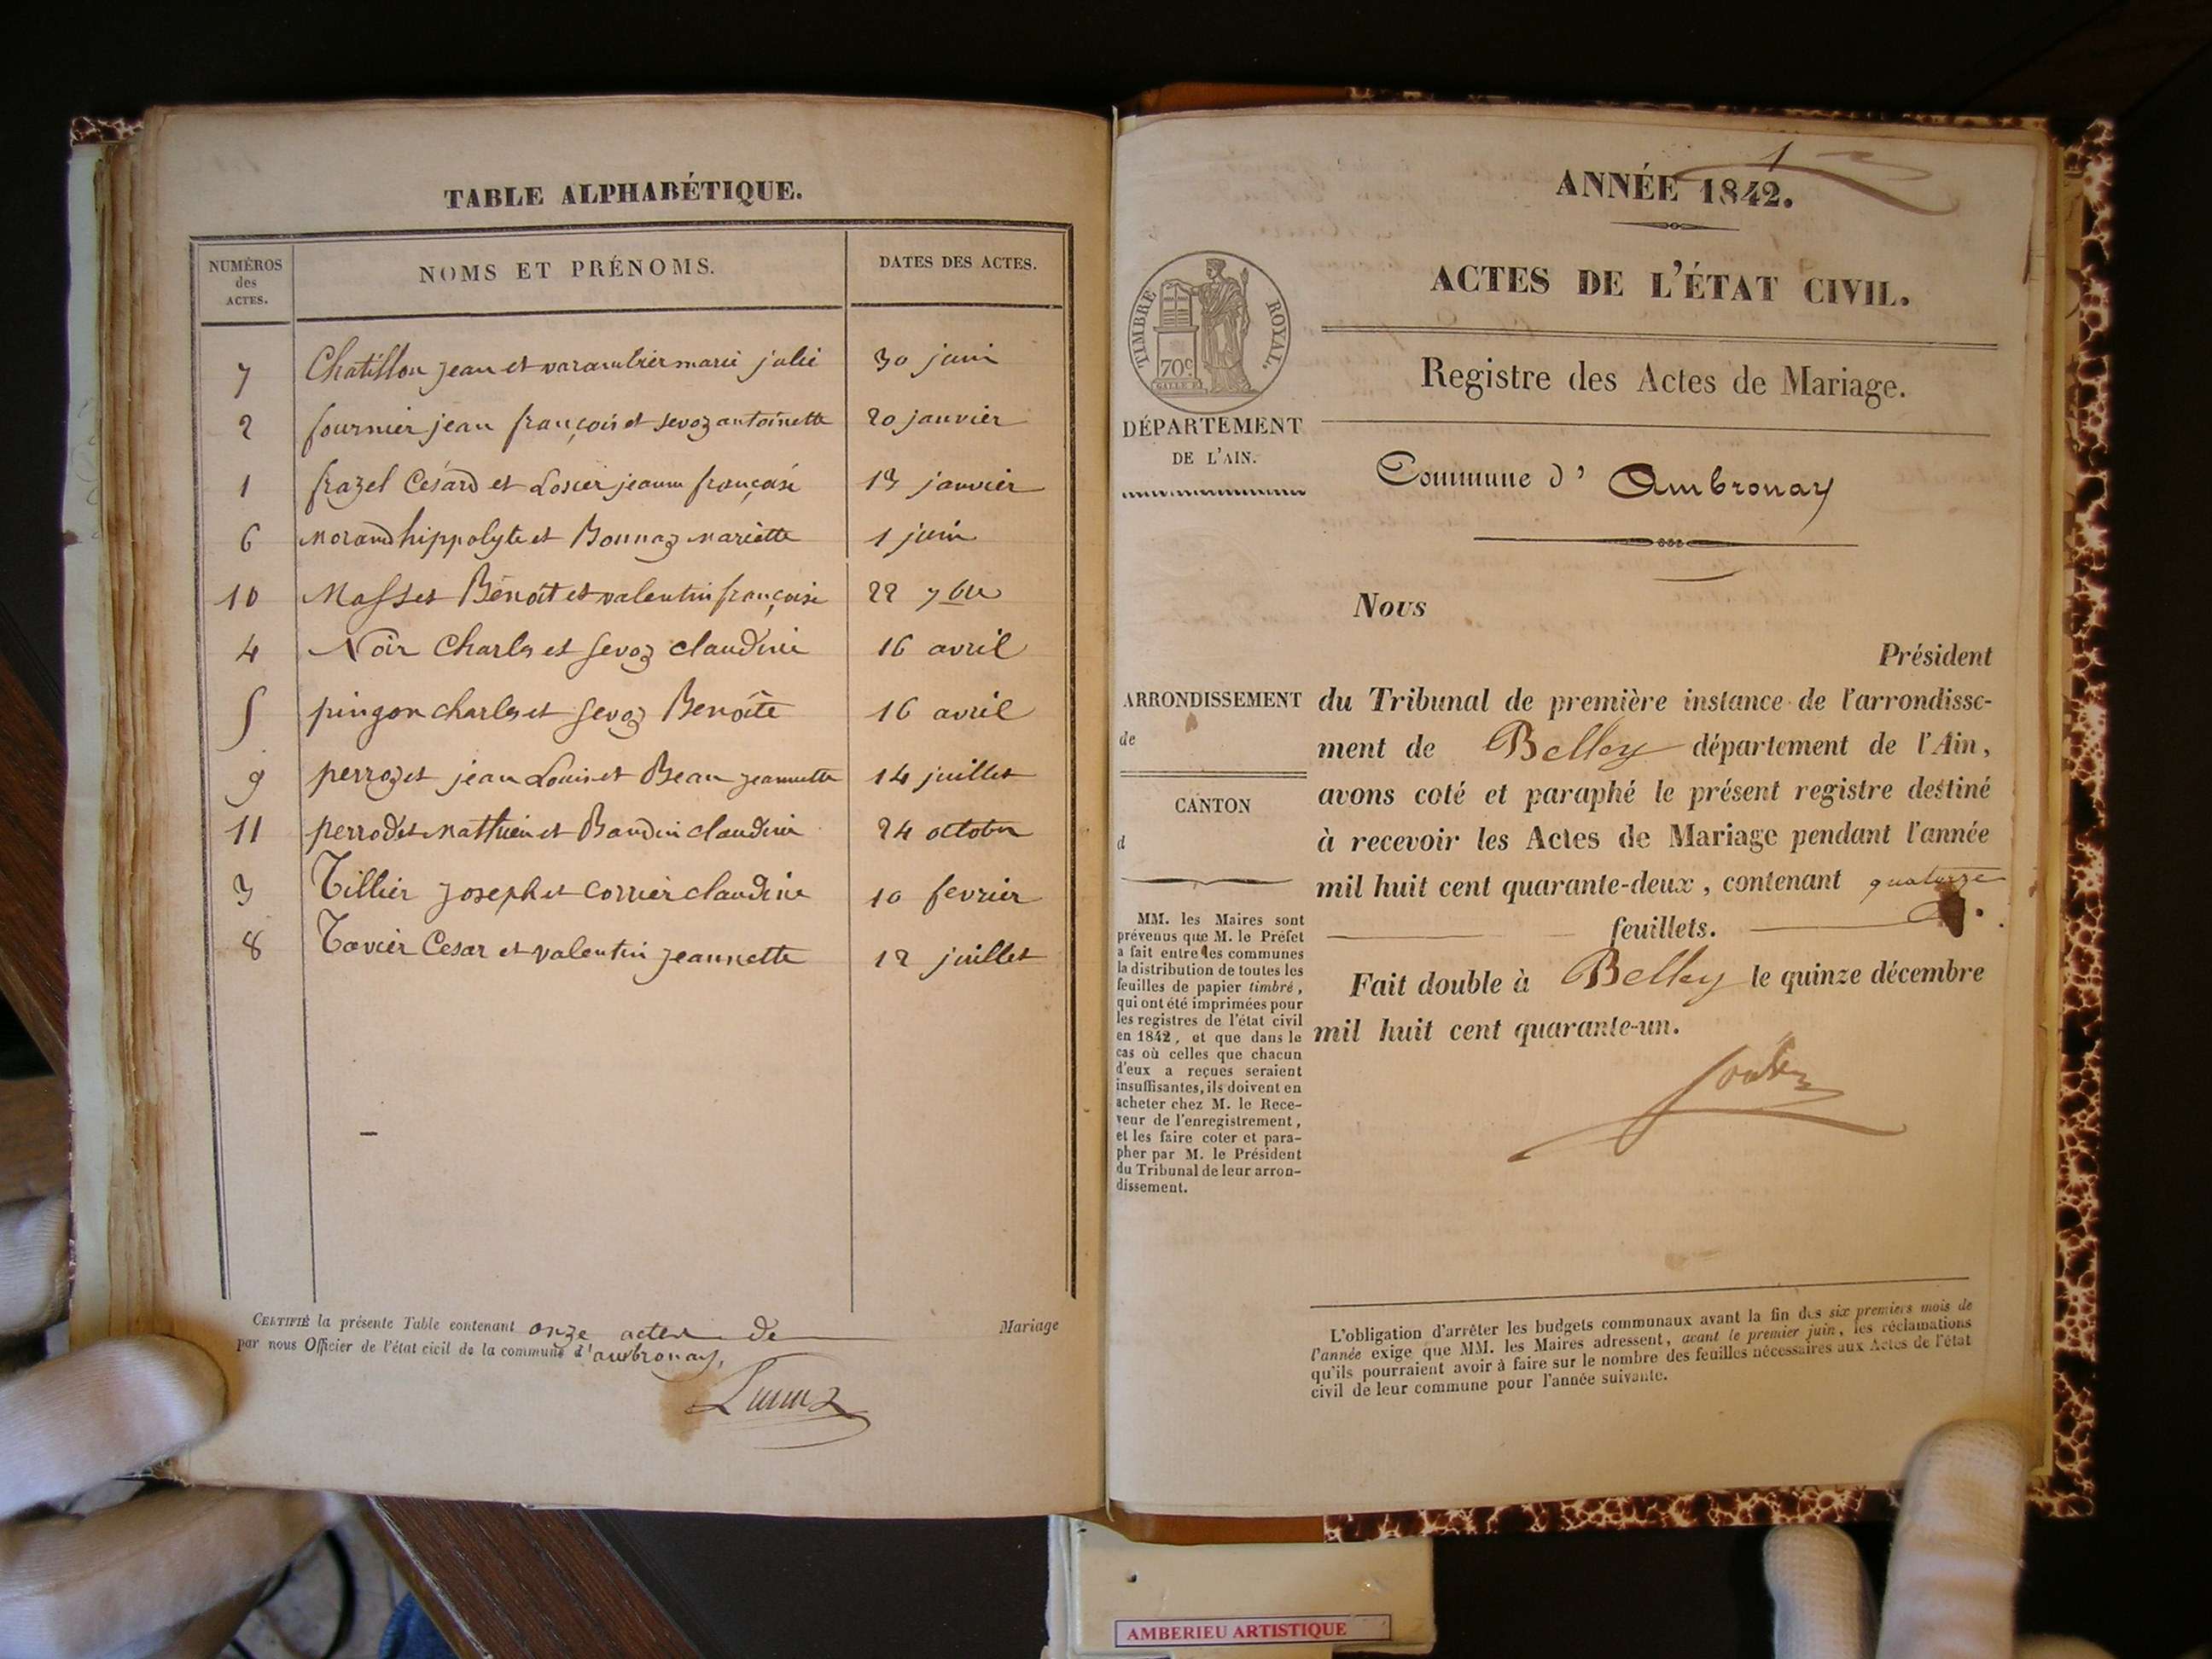 TABLE ALPHABÉTIQUE.
NUMÉROS
des
ACTES.
NOMS ET PRÉNOMS.
DATES DES ACTES.
7 Chatillon jean et varambier marie julie 30 juin
2 fournier jean françois et sevoz antoinette 20 janvier
1 frazel Césard et Losier jeanne françoise 13 janvier
6 Morand hippolyte et Bonnaz mariette 1 juin
10 Masset Benoit et valentin françoise 22 7bre
4 Noir Charles et sevoz claudine 16 avril
5 pingon charles et sevoz Benoîte 16 avril
9 perrozet jean Louis et Beau jeannette 14 juillet
11 perrodet Mathieu et Baudin claudine 24 octobre
3 Tillier joseph et Corrier claudine 10 fevrier
8 Tavier Cesar et valentin jeannette 12 juillet
CERTIFIÉ la présente Table contenant onze actes de Mariage
par nous Officier de l'état civil de la commune d'ambronay,
1
ANNÉE 1842.
ACTES DE L'ÉTAT CIVIL.
TIMBRE ROYAL.
70c
Registre des Actes de Mariage.
DÉPARTEMENT
DE L'AIN.
Commune d' Ambronay
Nous
Président
ARRONDISSEMENT
de
CANTON
d
du Tribunal de première instance de l'arrondisse-
ment de Belley département de l'Ain,
avons coté et paraphé le présent registre destiné
à recevoir les Actes de Mariage pendant l'année
mil huit cent quarante-deux, contenant quatorze
feuillets.
Fait double à Belley le quinze décembre
mil huit cent quarante-un.
MM. les Maires sont
prévenus que M. le Préfet
a fait entre les communes
la distribution de toutes les
feuilles de papier timbré,
qui ont été imprimées pour
les registres de l'état civil
en 1842, et que dans le
cas où celles que chacun
d'eux a reçues seraient
insuffisantes, ils doivent en
acheter chez M. le Rece-
veur de l'enregistrement,
et les faire coter et para-
pher par M. le Président
du Tribunal de leur arron-
dissement.
L'obligation d'arrêter les budgets communaux avant la fin des six premiers mois de
l'année exige que MM. les Maires adressent, avant le premier juin, les réclamations
qu'ils pourraient avoir à faire sur le nombre des feuilles nécessaires aux Actes de l'état
civil de leur commune pour l'année suivante.
AMBERIEU ARTISTIQUE